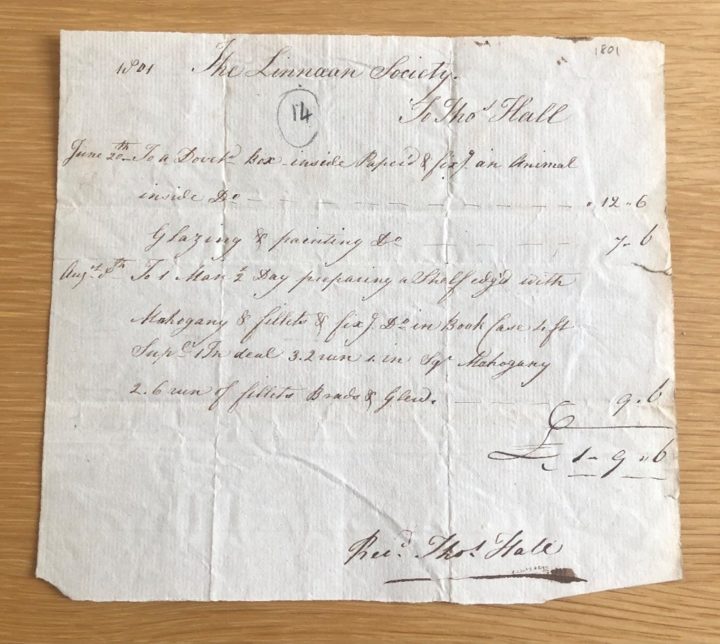 1801
1801 The Linnæan Society.
14
To Thos Hall
June 20th To a Dovetd box inside Paper'd & fixg. an Animal
inside Do " 12 " 6
Glazing & painting Do 7 - 6
Augst 8th To 1 Man ½ Day preparing a Shelf edg'd with
Mahogany & fillets & fixg. Do in Book Case 4 ft
Supl. 1 In deal 3.2 run 1 in Sqr Mahogany
2.6 run of fillets Brads & Glew. 9. 6
£ 1 - 9 " 6
Recd. Thos Hall